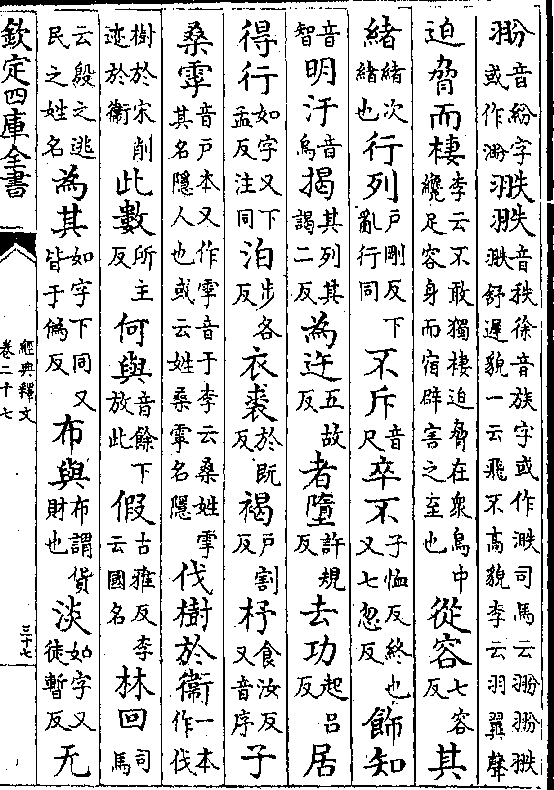 翂音紛字或作溤翐翐音秩徐音族字或作泆司馬云翂翂翐翐舒遲貌一云飛不高貌李云羽翼聲
迫脅而棲李云不敢獨棲迫脅在衆鳥中纔足容身而宿辟害之至也從容七容反其
緒緒次緒也行列户剛反下亂行同不斥音尺卒不子恤反終也又七忽反飾知
音智明汙音烏揭其列其謁二反為迕五故反者墮許規反去功起吕反居
得行如字又下孟反注同泊步各反衣裘於既反褐户割反杼食汝反又音序子
桑雽音户本又作雽音于李云桑姓雽其名隱人也或云姓桑雽名隱伐樹於衞一本作伐
樹於宋削迹於衞此數所主反何與音餘下放此假古雅反李云國名林回司馬
云殷之逃民之姓名為其如字下同又皆于偽反布與布謂貨財也淡如字又徒暫反无
欽定四庫全書
經典釋文
卷二十七
三十七